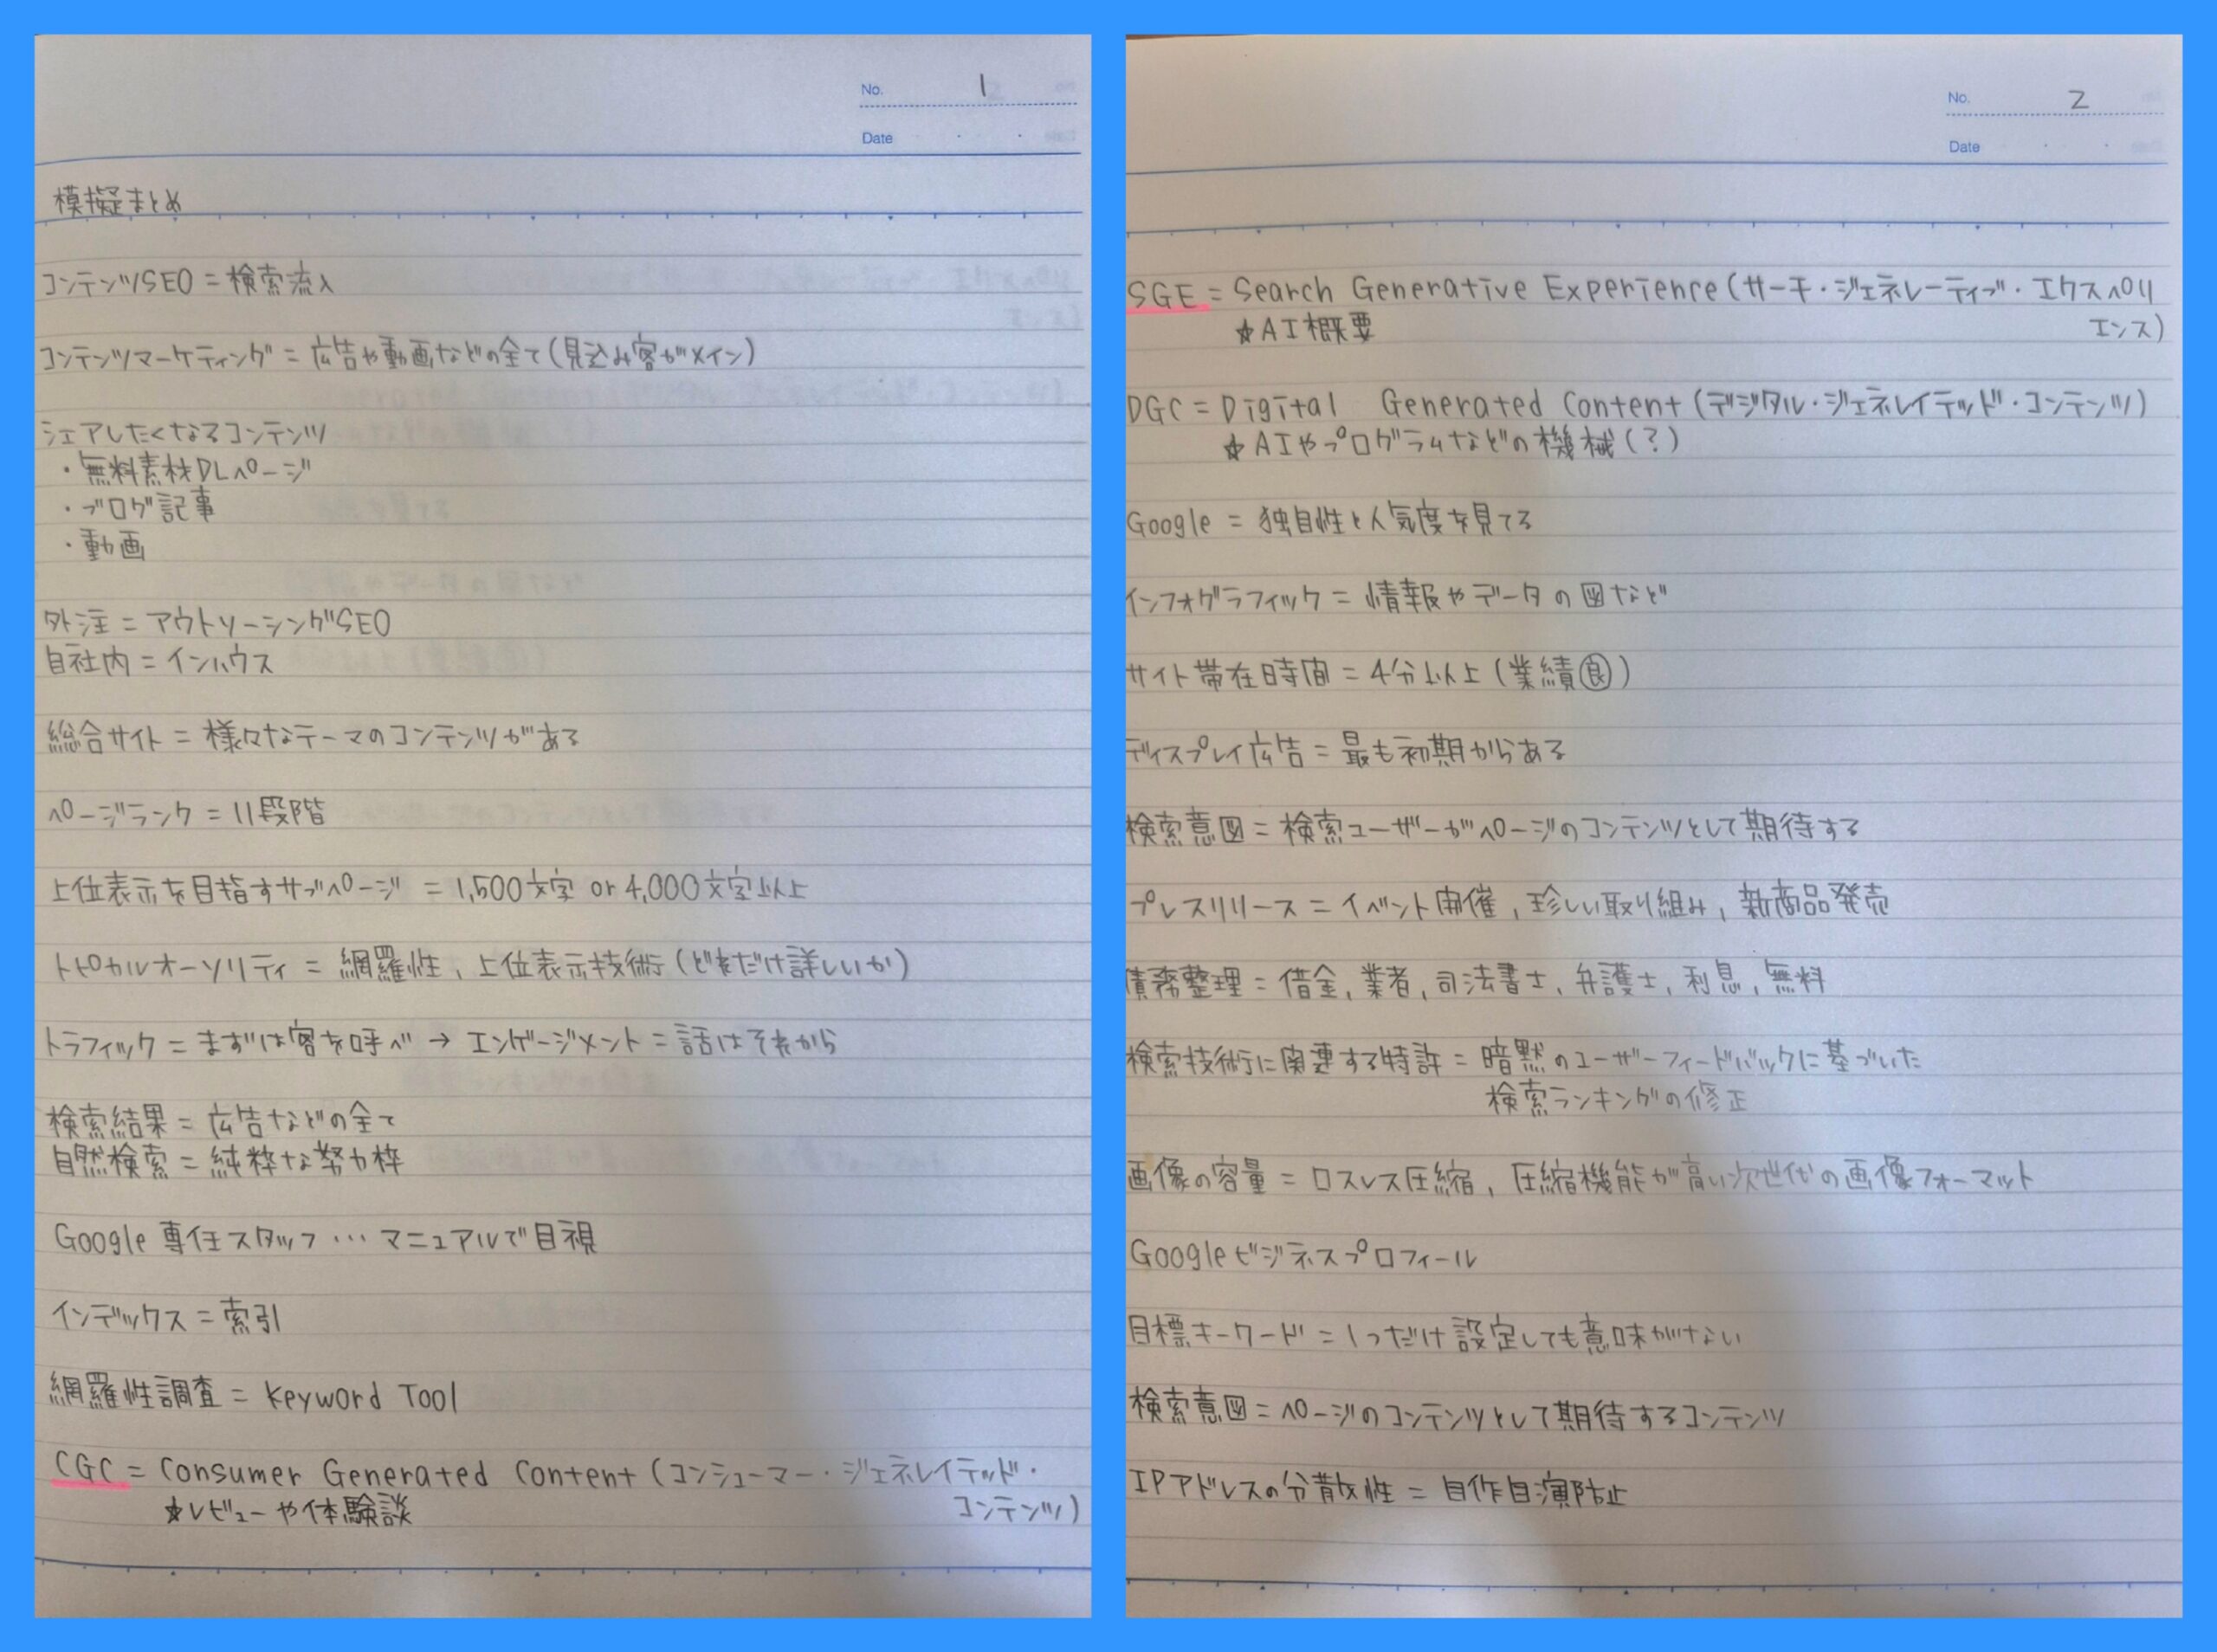 No. 1
Date
模擬まとめ
コンテンツSEO = 検索流入
コンテンツマーケティング = 広告や動画などの全て(見込み客がメイン)
シェアしたくなるコンテンツ
・無料素材DLページ
・ブログ記事
・動画
外注 = アウトソーシングSEO
自社内 = インハウス
総合サイト = 様々なテーマのコンテンツがある
ページランク = 11段階
上位表示を目指すサブページ = 1,500文字 or 4,000文字以上
トピカルオーソリティ = 網羅性, 上位表示技術(どれだけ詳しいか)
トラフィック = まずは客を呼べ → エンゲージメント = 話はそれから
検索結果 = 広告などの全て
自然検索 = 純粋な努力枠
Google 専任スタッフ … マニュアルで目視
インデックス = 索引
網羅性調査 = Keyword Tool
CGC = Consumer Generated Content (コンシューマー・ジェネレイテッド・
★レビューや体験談 コンテンツ)
No. 2
Date
SGE = Search Generative Experience (サーチ・ジェネレーティブ・エクスペリ
★AI概要 エンス)
DGC = Digital Generated Content (デジタル・ジェネレイテッド・コンテンツ)
★AIやプログラムなどの機械(?)
Google = 独自性と人気度を見てる
インフォグラフィック = 情報やデータの図など
サイト帯在時間 = 4分以上(業績㊜良)
ディスプレイ広告 = 最も初期からある
検索意図 = 検索ユーザーがページのコンテンツとして期待する
プレスリリース = イベント開催, 珍しい取り組み, 新商品発売
債務整理 = 借金, 業者, 司法書士, 弁護士, 利息, 無料
検索技術に関連する特許 = 暗黙のユーザーフィードバックに基づいた
検索ランキングの修正
画像の容量 = ロスレス圧縮, 圧縮機能が高い次世代の画像フォーマット
Googleビジネスプロフィール
目標キーワード = 1つだけ設定しても意味がない
検索意図 = ページのコンテンツとして期待するコンテンツ
IPアドレスの分散性 = 自作自演防止